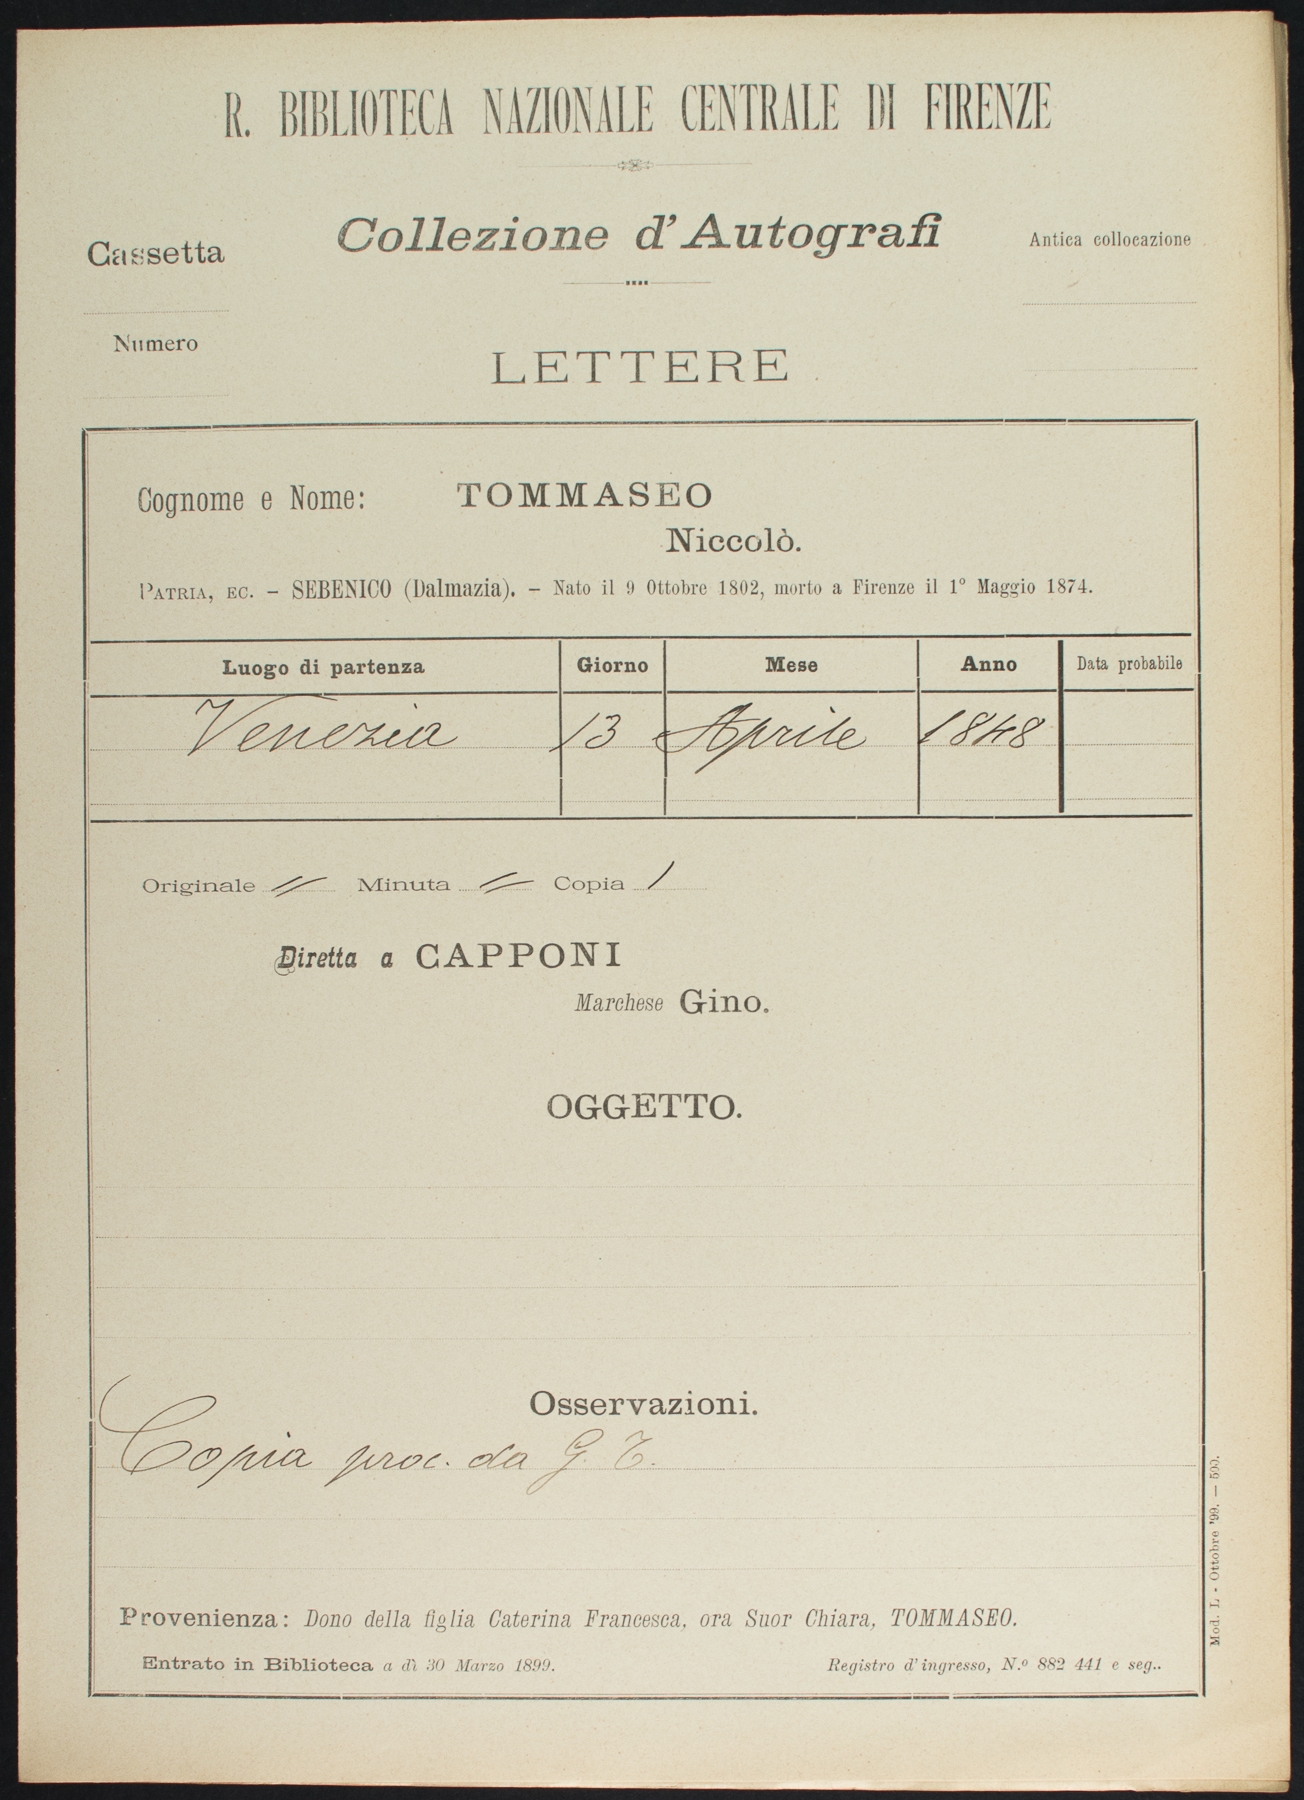 R. BIBLIOTECA NAZIONALE CENTRALE DI FIRENZE
Collezione d'Autografi
Cassetta
Antica collocazione
Numero
LETTERE
Cognome e Nome: TOMMASEO
Niccolò.
PATRIA, EC. – SEBENICO (Dalmazia). – Nato il 9 Ottobre 1802, morto a Firenze il 1º Maggio 1874.
Luogo di partenza Giorno Mese Anno Data probabile
Venezia 13 Aprile 1848
Originale // Minuta // Copia 1
Diretta a CAPPONI
Marchese Gino.
OGGETTO.
Osservazioni.
Copia proc. da G. T.
Provenienza: Dono della figlia Caterina Francesca, ora Suor Chiara, TOMMASEO.
Entrato in Biblioteca a dì 30 Marzo 1899. Registro d'ingresso, N.º 882 441 e seg..
Mod. L - Ottobre '99. — 500.